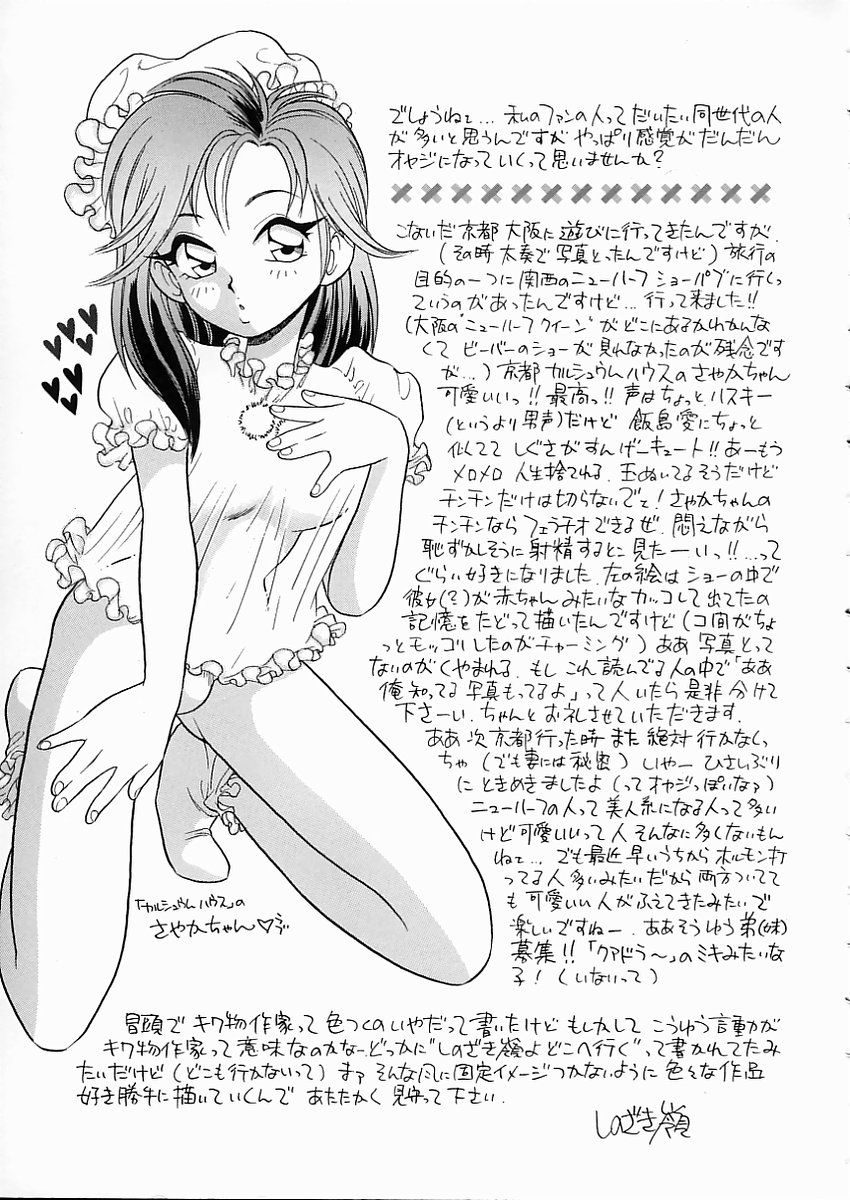 でしょうねェ… 私のファンの人ってだいたい同世代の人
が多いと思うんですが やっぱり感覚がだんだん
オヤジになっていくって思いませんか？
こないだ京都 大阪に 遊びに行ってきたんですが、
（その時 太奏で写真とったんですけど）旅行の
目的の一つに関西のニューハーフ ショーパブに行くっ
ていうのがあったんですけど… 行って来ました!!
（大阪の"ニューハーフクイーン"がどこにあるかわかんな
くて ビーバーのショーが見れなかったのが残念です
が…）京都 カルシュウムハウスのさやかちゃん
可愛いいっ!! 最高っ!! 声はちょっとハスキー
（というより男声）だけど 飯島愛にちょっと
似てて しぐさがすんげーキュート!! あーもう
メロメロ 人生捨てれる. 玉ぬいてるそうだけど
チンチンだけは切らないでェ! さやかちゃんの
チンチンなら フェラチオできるぜ. 悶えながら
恥ずかしそうに射精するとこ見たーいっ!!…って
ぐらい好きになりました. 左の絵はショーの中で
彼女(?)が赤ちゃんみたいなカッコして出てたの
記憶をたどって描いたんですけど（コ間がちょ
っとモッコリしたのがチャーミング）ああ 写真とって
ないのがくやまれる. もし これ読んでる人の中で「ああ
俺知ってる 写真もってるよ」って人いたら是非 分けて
下さーい. ちゃんと お礼させていただきます.
ああ 次 京都行った時 また 絶対 行かなくっ
ちゃ（でも妻には秘密）いやー ひさしぶり
に ときめきましたよ（ってオヤジっぽいなァ）
ニューハーフの人って美人系になる人って多い
けど可愛いいって人 そんなに多くないもん
ねェ… でも最近 早いうちから ホルモン打
ってる人 多いみたいだから 両方ついてて
も可愛いい人がふえてきたみたいで
楽しいですねー. ああそうゆう弟(妹)
募集!!「クアドラ〜」のミキみたいな
子!（いないって）
「カルシュウムハウス」の
さやかちゃん♡
冒頭で キワ物作家って色つくのいやだって書いたけど もしかして こうゆう言動が
キワ物作家って意味なのかなー. どっかに"しのざき嶺よどこへ行く"って書かれてたみ
たいだけど（どこも行かないって）まァ そんな風に固定イメージつかないように 色々な作品
好き勝手に描いていくんで あたたかく見守って下さい.
しのざき嶺